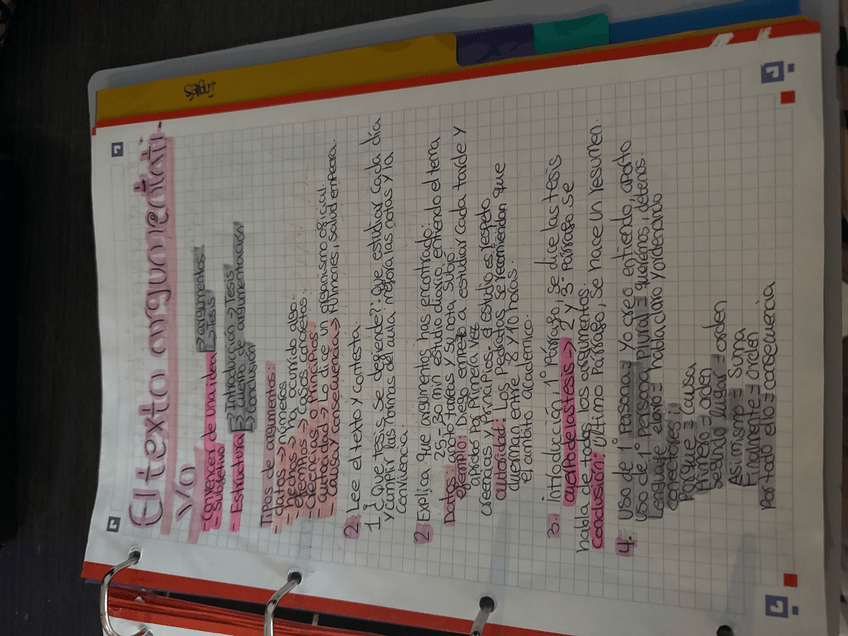 inglés
El texto argumentati-
vo
- Convencer de una idea
- Subjetivo
argumentos
tesis
- Estructura
Introducción → Tesis
Cuerpo de argumentación
Conclusión
Tipos de argumentos:
- datos → números
- hechos → ha ocurrido algo.
- ejemplos → Casos concretos.
- Creencias o Principios
- autoridad → Lo dice un organismo oficial
- Causa, consecuencia → Pulmones, salud empeora.
2. Lee el texto y contesta.
1. ¿Que tesis se defiende?: que estudiar cada día
y cumplir las normas del aula mejora las notas y la
convivencia
2 Explica que argumentos has encontrado:
Datos: 25-30 min estudio diario, entiendo el tema
ejemplo: Diego empezó a estudiar cada tarde y
tareas y su nota subió.
por primera vez.
creencias y Principios: el estudio es respeto
autoridad: Los Pediatras se recomiendan que
duerman entre 8 y 10 horas.
el ambito academico.
3. Introducción, 1º Párrafo, se dice las tesis
cuerpo de las tesis → 2 y 3 Párrafo se
habla de todos los argumentos.
Conclusión: Último Párrafo, se hace un resumen.
4. Uso de 1º Persona: Yo creo, entiendo, aporto
Uso de 1º persona Plural = queremos, debemos
Lenguaje claro = habla claro y ordenando
Conectores:
Porque = causa
Primero = orden
Segundo lugar = orden
Asimismo = suma
Finalmente = orden
Por todo ello = consecuencia